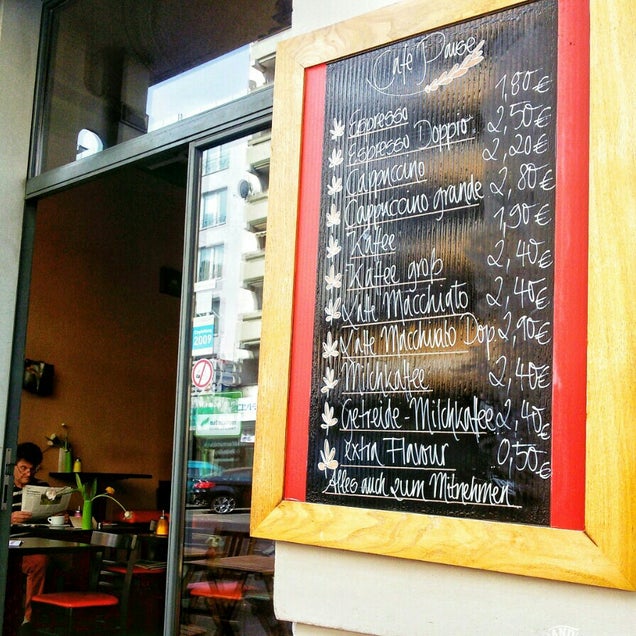 Café Pause
Espresso 1,80€
Espresso Doppio 2,50€
Cappuccino 2,20€
Cappuccino grande 2,80€
Kaffee 1,90€
Kaffee groß 2,40€
Latte Macchiato 2,40€
Latte Macchiato Dop 2,90€
Milchkaffee 2,40€
Getreide-Milchkaffee 2,40€
extra Flavour 0,50€
Alles auch zum Mitnehmen
2009